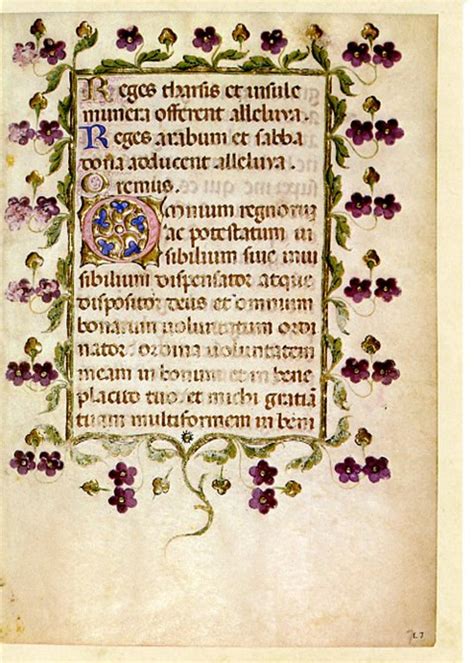 Reges tharsis et insule
munera offerent alleluya.
Reges arabum et sabba
dona adducent alleluya.
Oremus.
Omnium regnorum
ac potestatum ui
sibilium siue inui
sibilium dispensator atque
dispositor deus et omnium
bonarum uoluntatum ordi
nator orbina uoluntatem
meam in bonum et in bene
placito tuo et michi gratiā
tuam multiformem in beni
L 7